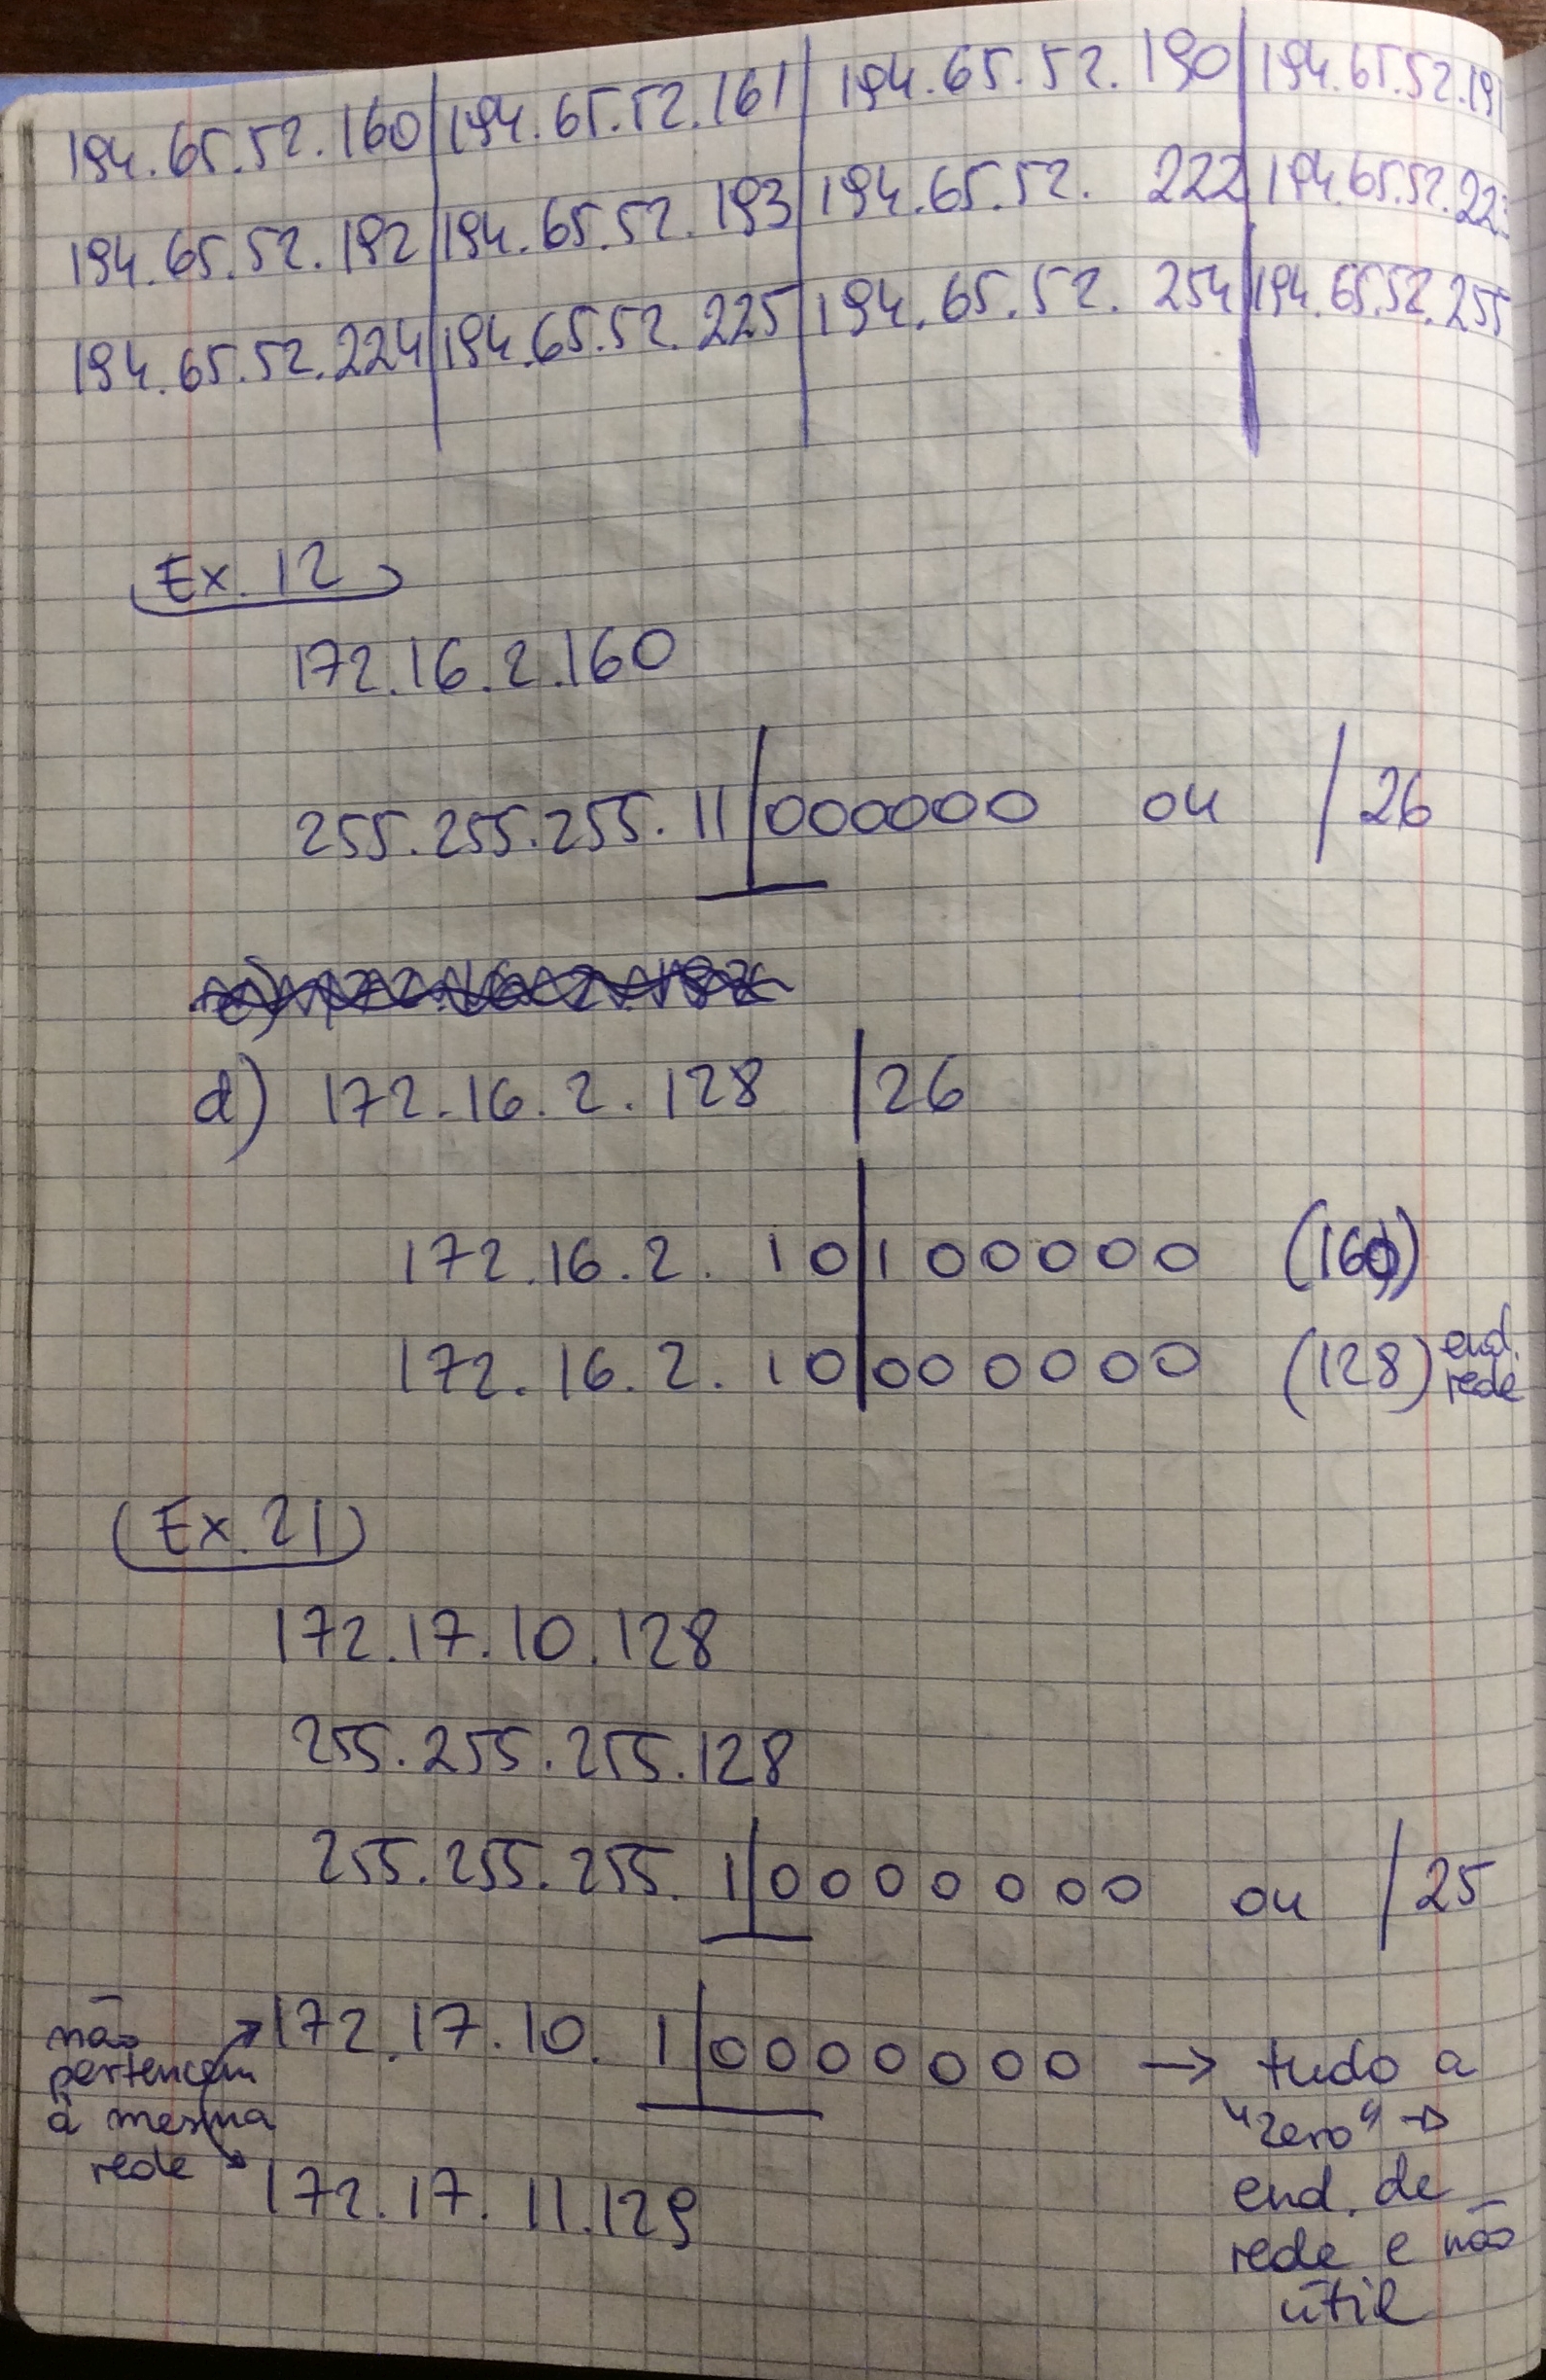 194.65.52.160 | 194.65.52.161 | 194.65.52.190 | 194.65.52.191
194.65.52.192 | 194.65.52.193 | 194.65.52. 222 | 194.65.52.223
194.65.52.224 | 194.65.52.225 | 194.65.52. 254 | 194.65.52.255
Ex. 12
172.16.2.160
255.255.255.11|000000 ou /26
d) 172.16.2.128 /26
172.16.2. 10|100000 (160)
172.16.2. 10|000000 (128) end. rede
Ex. 21
172.17.10.128
255.255.255.128
255.255.255. 1|0000000 ou /25
172.17.10. 1|0000000 → tudo a
"zero" →
end. de
rede e não
útil
não
pertencem
à mesma
rede
172.17.11.129